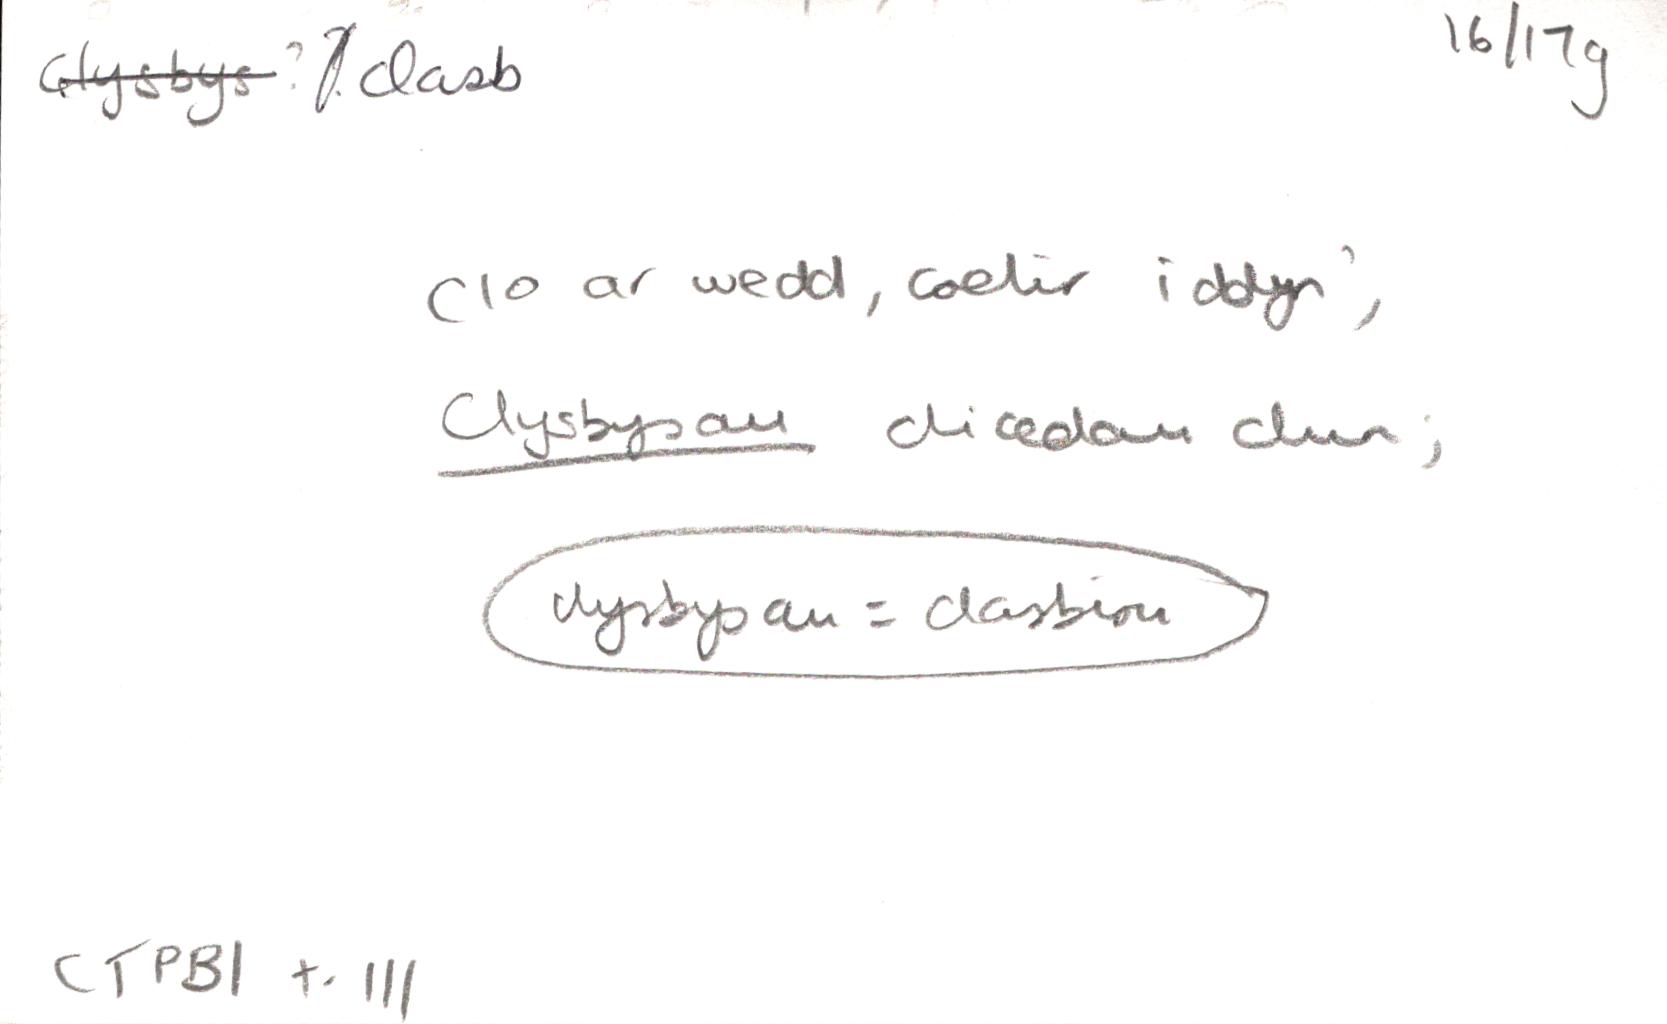 Clysbys ? clasb
16/17g
Clo ar wedd, coelir iddyn',
Clysbysau clicedau clun;
clysbysau = clasbiau
CTPBI t. 111